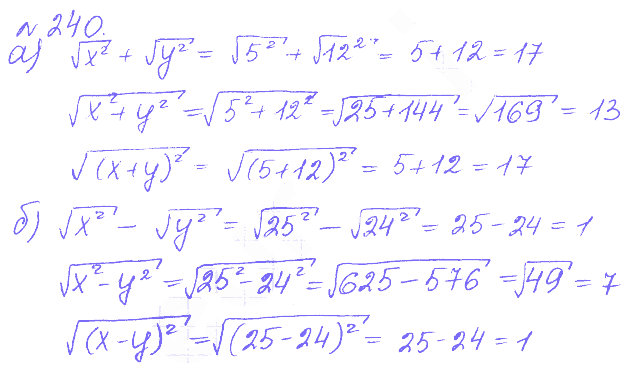 № 240.
а) √x² + √y² = √5² + √12² = 5 + 12 = 17
√(x² + y²) = √(5² + 12²) = √(25 + 144) = √169 = 13
√(x + y)² = √(5 + 12)² = 5 + 12 = 17
б) √x² - √y² = √25² - √24² = 25 - 24 = 1
√(x² - y²) = √(25² - 24²) = √(625 - 576) = √49 = 7
√(x - y)² = √(25 - 24)² = 25 - 24 = 1